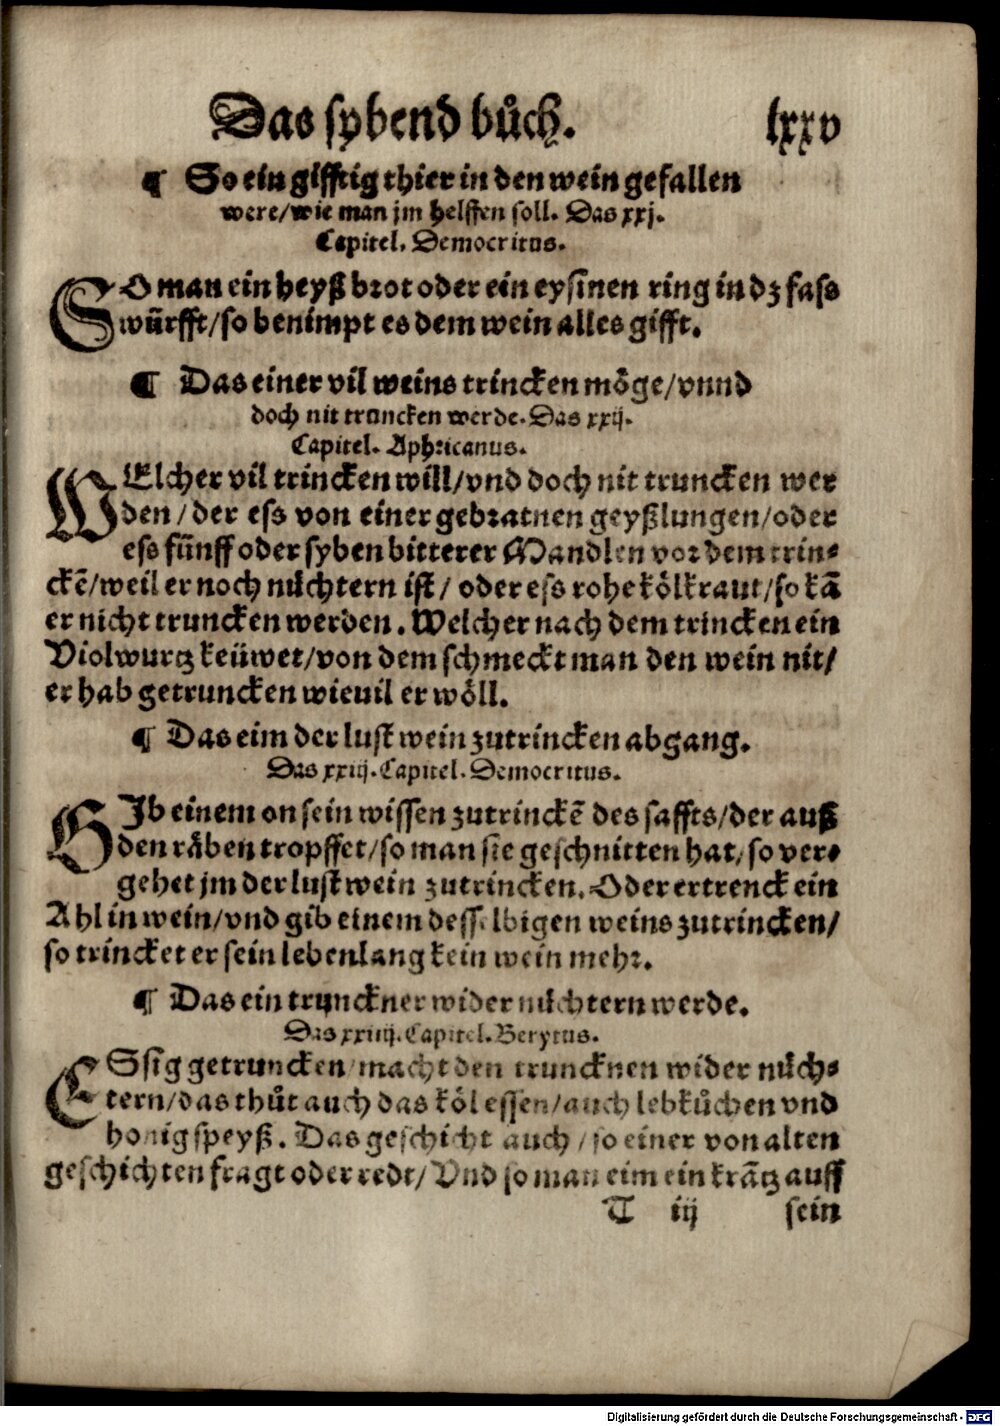 Das sybend bůch. lxxv
¶ So ein gifftig thier in den wein gefallen
were/wie man jm helffen soll. Das xxj.
Capitel. Democritus.
SO man ein heyß brot oder ein eysinen ring in dz fass
würfft/so benimpt es dem wein alles gifft.
¶ Das einer vil weins trincken möge/vnnd
doch nit truncken werde. Das xxij.
Capitel. Aphricanus.
WElcher vil trincken will/vnd doch nit truncken wer
den/der ess von einer gebratnen geyßlungen/oder
ess fünff oder syben bitterer Mandlen vor dem trin⸗
ckē/weil er noch nůchtern ist/ oder ess rohe kölkraut/so kā
er nicht truncken werden. Welcher nach dem trincken ein
Violwurtz keüwet/von dem schmeckt man den wein nit/
er hab getruncken wieuil er wöll.
¶ Das eim der lust wein zutrincken abgang.
Das xxiij. Capitel. Democritus.
GIb einem on sein wissen zutrinckē des saffts/der auß
den räben tropffet/so man sie geschnitten hat/so ver⸗
gehet jm der lust wein zutrincken. Oder ertrenck ein
Ahl in wein/vnd gib einem desselbigen weins zutrincken/
so trincket er sein lebenlang kein wein mehr.
¶ Das ein trunckner wider nůchtern werde.
Das xxiiij. Capitel. Berytus.
ESsig getruncken/macht den truncknen wider nůch⸗
tern/das thůt auch das köl essen/auch lebkůchen vnd
honigspeyß. Das geschicht auch/so einer von alten
geschichten fragt oder redt/Vnd so man eim ein kräntz auff
T iij sein
Digitalisierung gefördert durch die Deutsche Forschungsgemeinschaft - DFG